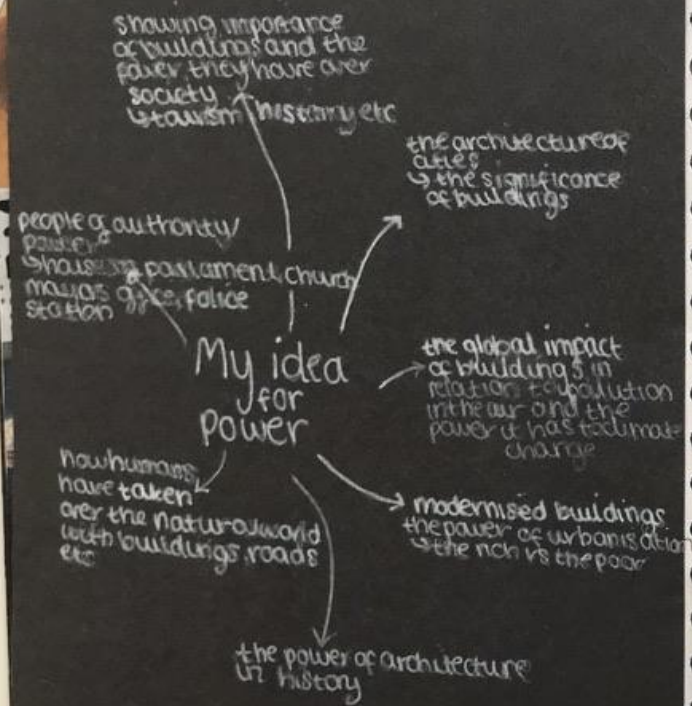 showing importance
of buildings and the
power they have over
society
↳ tourism, history etc
the architecture of
cities
↳ the significance
of buildings
people of authority/
power
parliament, church
mayors office, police
station
My idea
for
power
the global impact
of buildings in
relation to polution
in the air and the
power it has to climate
change
how humans
have taken
over the natural world
with buildings, roads
etc
modernised buildings
the power of urbanisation
↳ the rich vs the poor
the power of architecture
in history